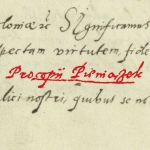 loniæ &c Significamus
spectum virtutem, fide
Procopii Pieniążek
lici nostri, quibus se no